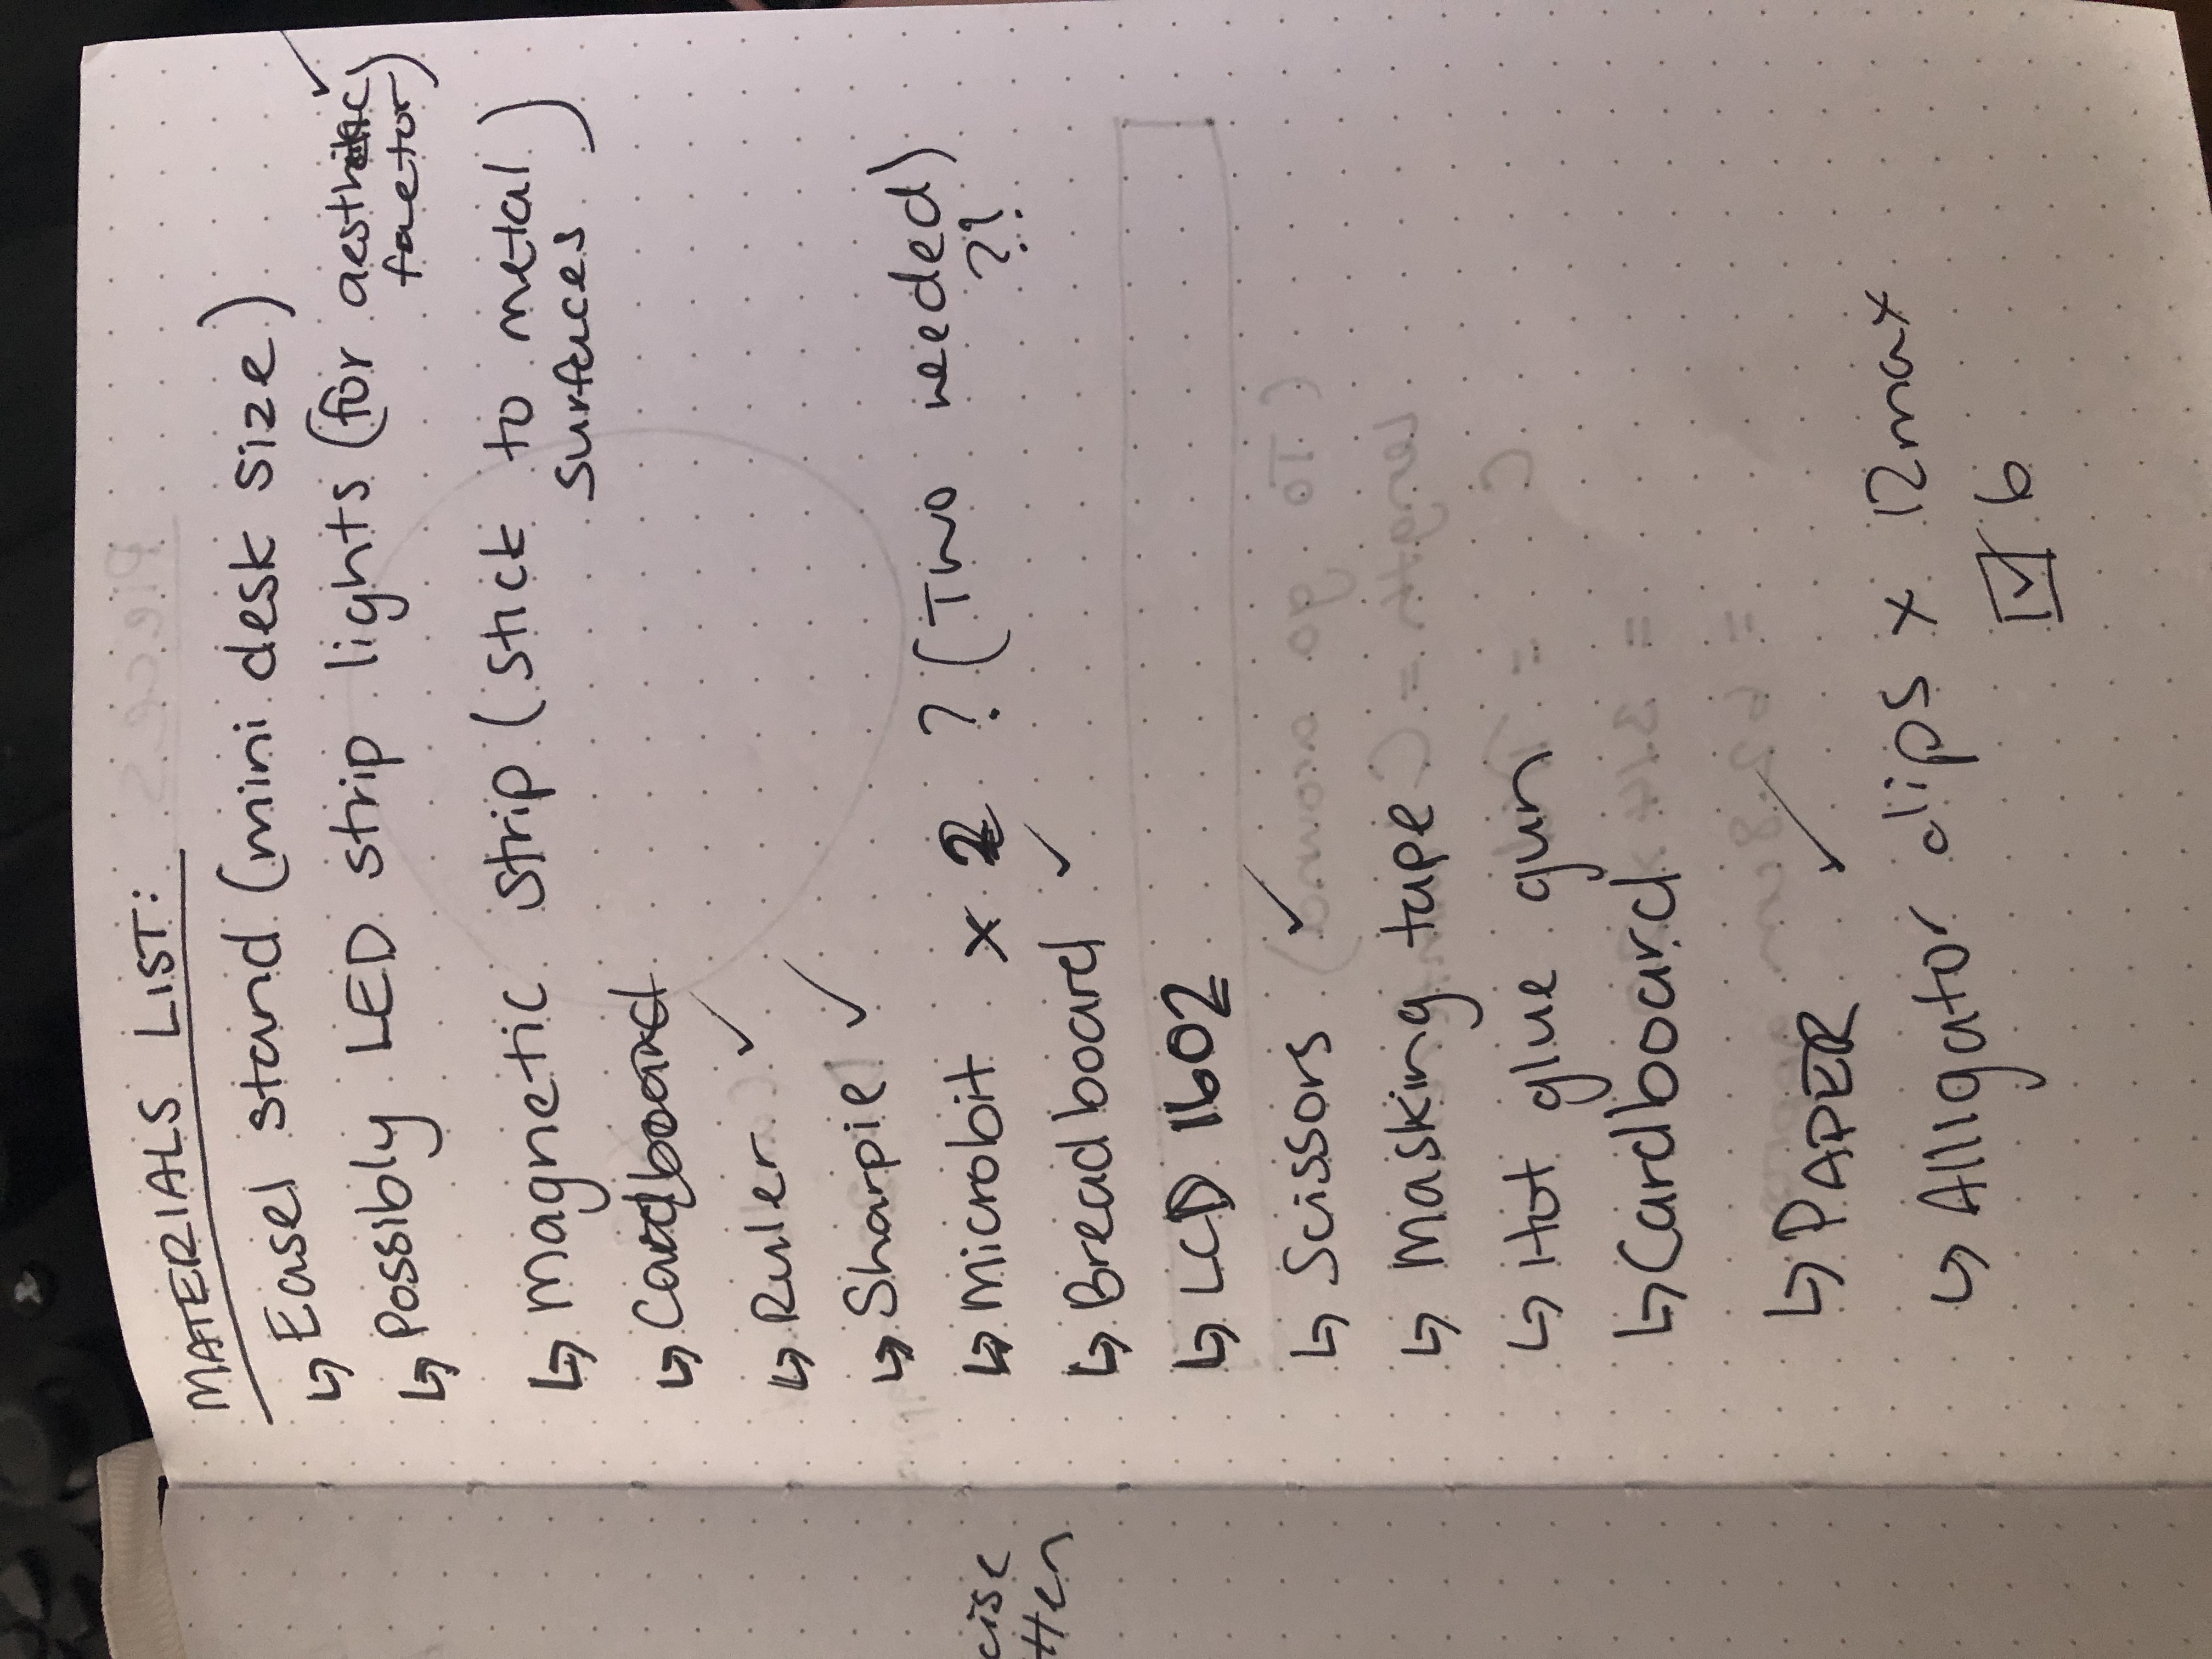 MATERIALS LIST:
↳ Easel stand (mini desk size)
↳ Possibly LED strip lights (for aesthetic ✓
factor)
↳ Magnetic strip (stick to metal
surfaces)
↳ Cardboard
↳ Ruler ✓
↳ Sharpie ✓
↳ Microbit x 2 ? (Two needed)
?!
↳ Breadboard ✓
↳ LCD 1602
↳ Scissors ✓
↳ Masking tape
↳ Hot glue gun
↳ Cardboard
↳ PAPER ✓
↳ Alligator clips x 12 max
☑ 6
cise
tten
Pieces
(To go around)
Length = C
C =
= 3.14 x
= 62.8cm approx